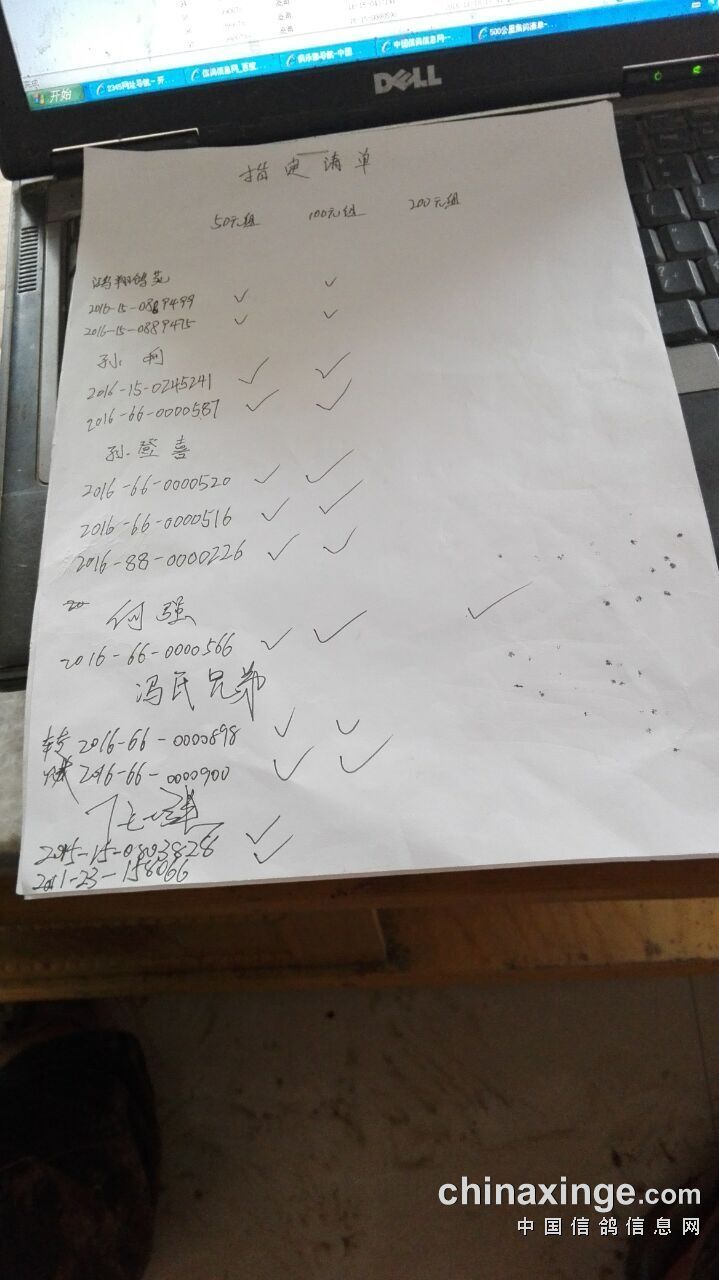 开始 2345网址导航－开... 信鸽信息网_百度... 俱乐部导航-中国 中国信鸽信息网-... 500公里集鸽清单-...
DELL
指定清单
50元组 100元组 200元组
鸿翔鸽苑 ✓
2016-15-0889499 ✓
2016-15-0889475 ✓ ✓
孙刚
2016-15-0245241 ✓ ✓
2016-66-0000587 ✓ ✓
孙登喜
2016-66-0000520 ✓ ✓
2016-66-0000516 ✓ ✓
2016-88-0000226 ✓ ✓
何强 ✓
2016-66-0000566 ✓ ✓
冯氏兄弟
转 2016-66-0000898 ✓ ✓
赋 2016-66-0000900 ✓ ✓
2015-15-0803828 ✓
2011-23-158066 ✓
chinaxinge.com
中国信鸽信息网